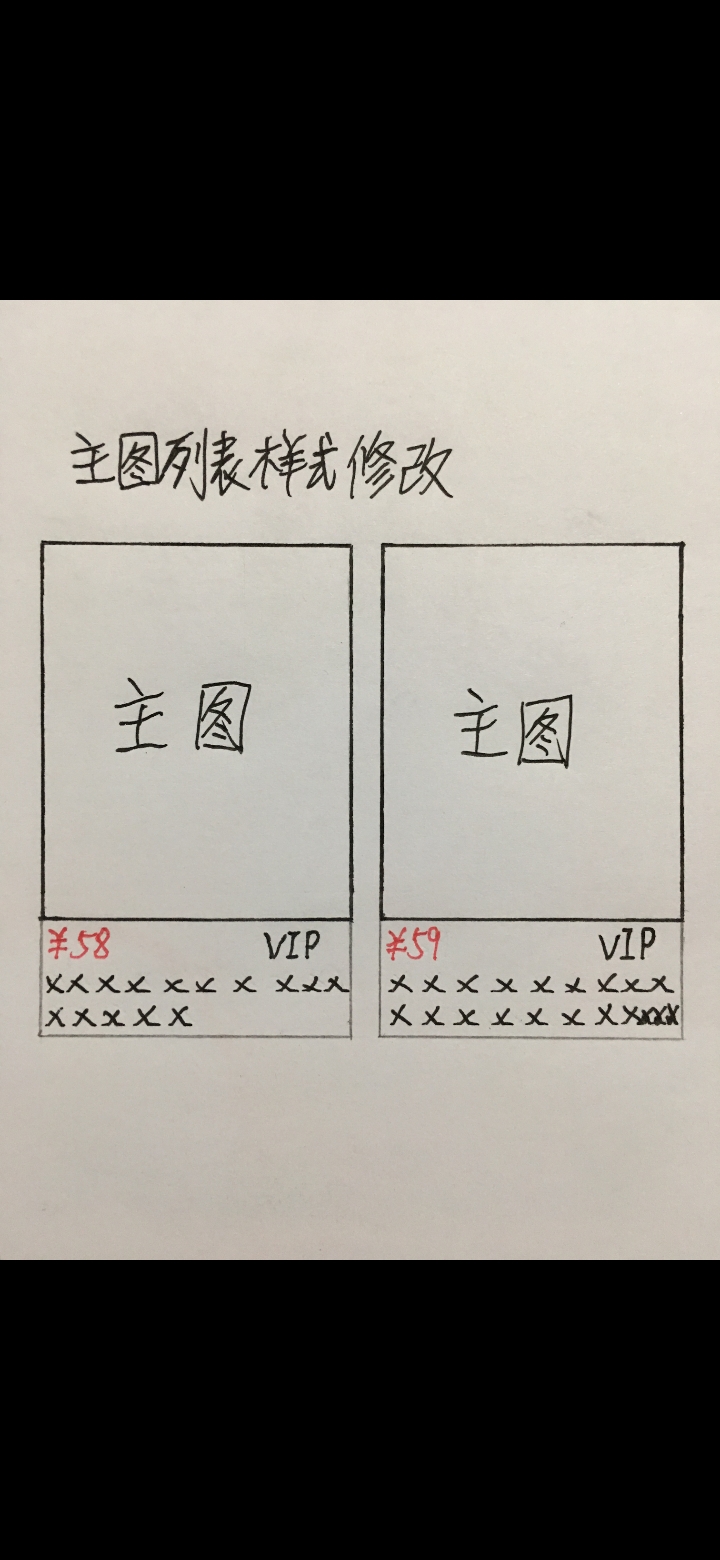 主图列表样式修改
主图
主图
¥58 VIP
xxxx xx x xxx
xxxxx
¥59 VIP
xxxxxxxxx
xxxxxxxxxxx